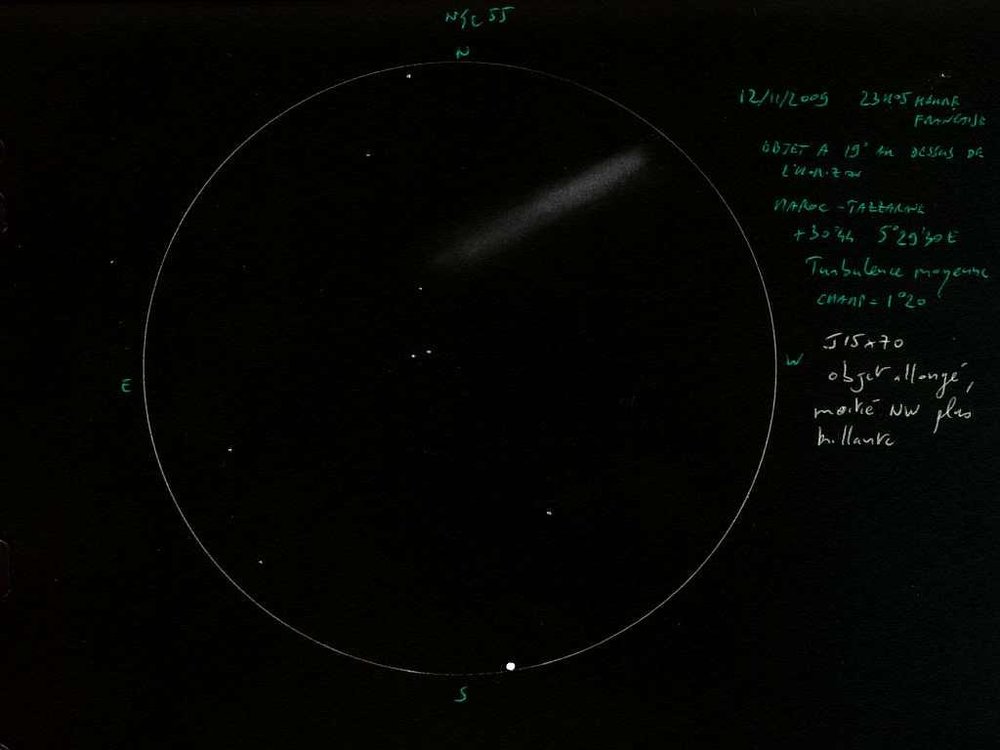 NGC 55
N
12/11/2009 23H05 HEURE
FRANÇAISE
OBJET A 19° AU DESSUS DE
L'HORIZON
MAROC - TAZZARINE
+30°44 5°29'30 E
Turbulence moyenne
CHAMP = 1°20
W
J 15x70
E
objet allongé,
moitié NW plus
brillante
S